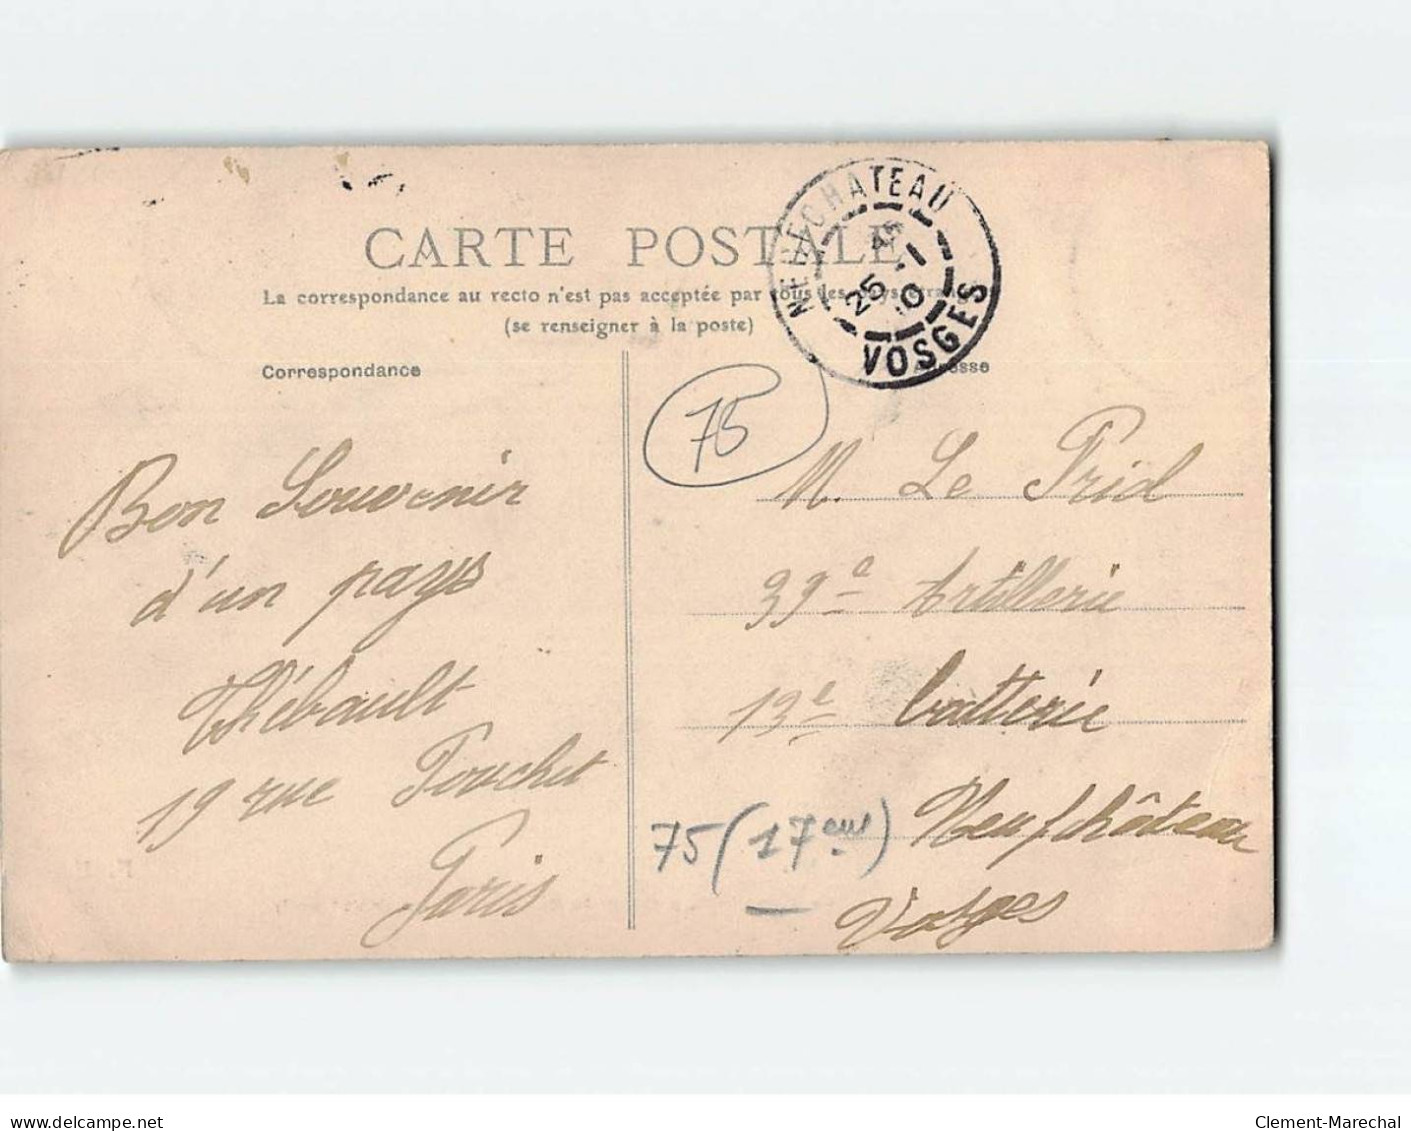 CARTE POSTALE
La correspondance au recto n'est pas acceptée par tous les pays
(se renseigner à la poste)
NEUFCHATEAU
25 -1
10
VOSGES
Correspondance
Adresse
75
Bon Souvenir
d'un pays
Thébault
19 rue Pouchet
Paris
M. Le Prid
39e Artillerie
13e batterie
Neufchâteau
Vosges
75 (17eme)
delcampe.net
Clement-Marechal